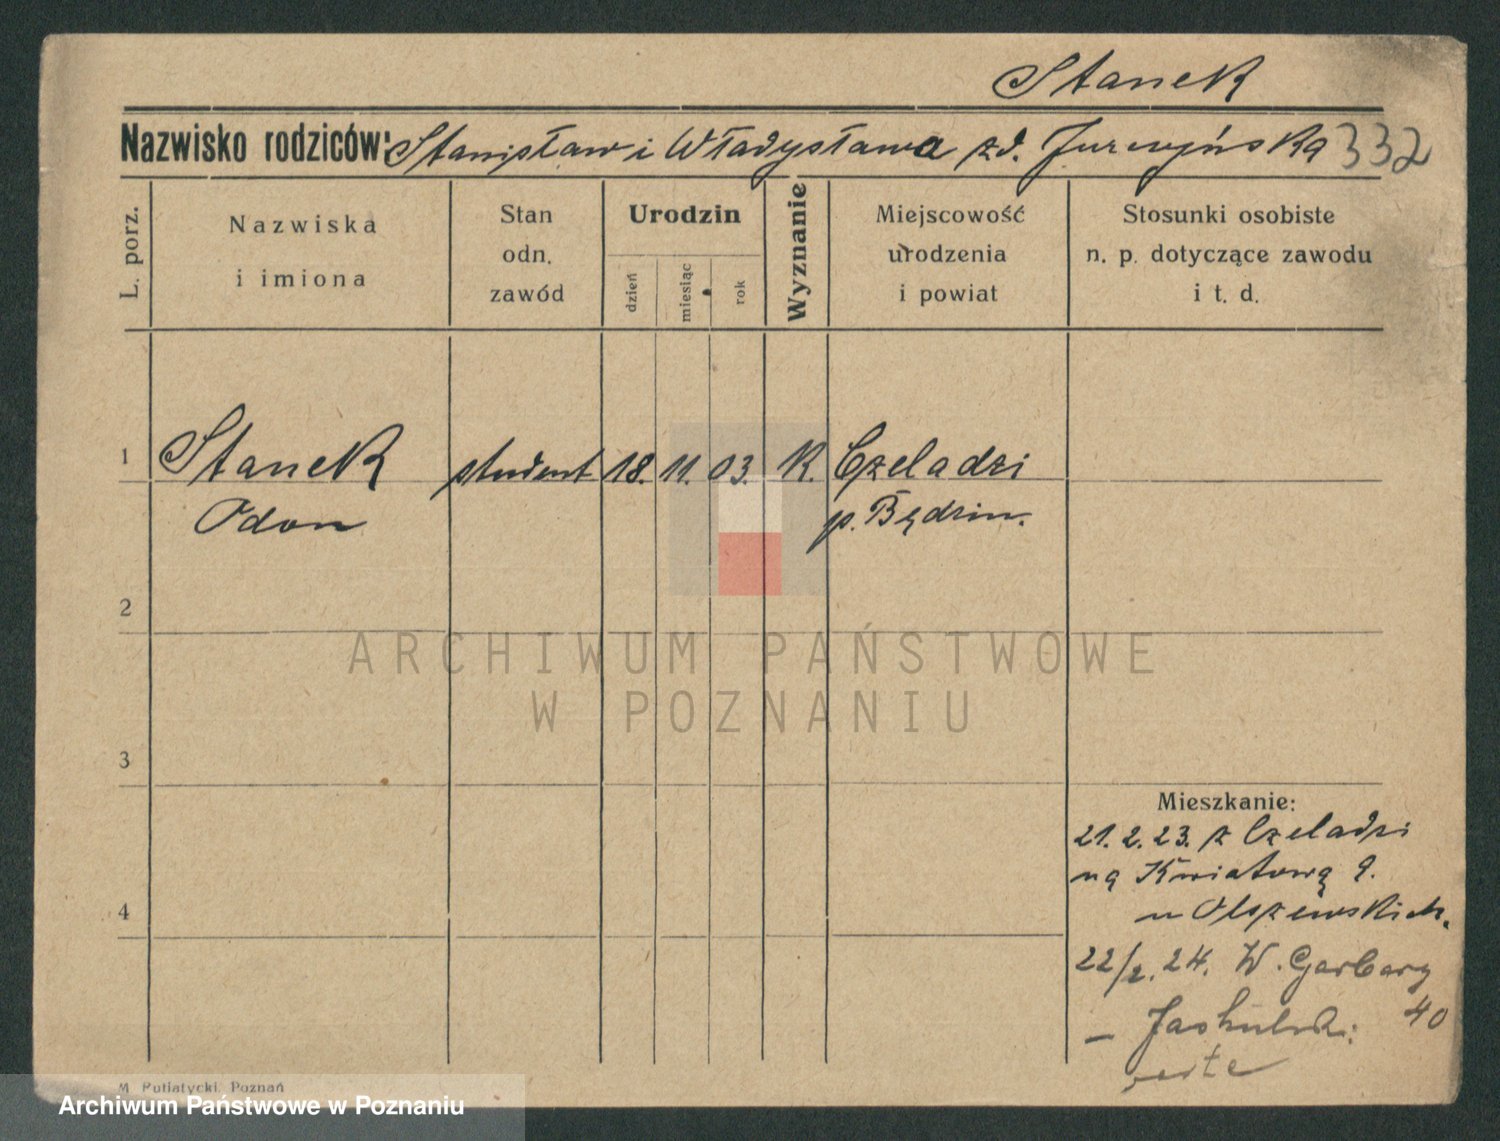 Stanek
Nazwisko rodziców: Stanisław i Władysława zd. Jurczyńska 332
L. porz.
Nazwiska
i imiona
Stan
odn.
zawód
Urodzin
dzień
miesiąc
rok
Wyznanie
Miejscowość
urodzenia
i powiat
Stosunki osobiste
n. p. dotyczące zawodu
i t. d.
1 Stanek student 18. 11. 03. K. Czeladzi
Odon p. Będzin.
2
3
Mieszkanie:
21. 2. 23. z Czeladzi
na Kwiatową 9.
4
u Olszewskich.
22/2. 24. W. Garbary
40
M. Putiatycki, Poznań
ARCHIWUM PAŃSTWOWE
W POZNANIU
Archiwum Państwowe w Poznaniu